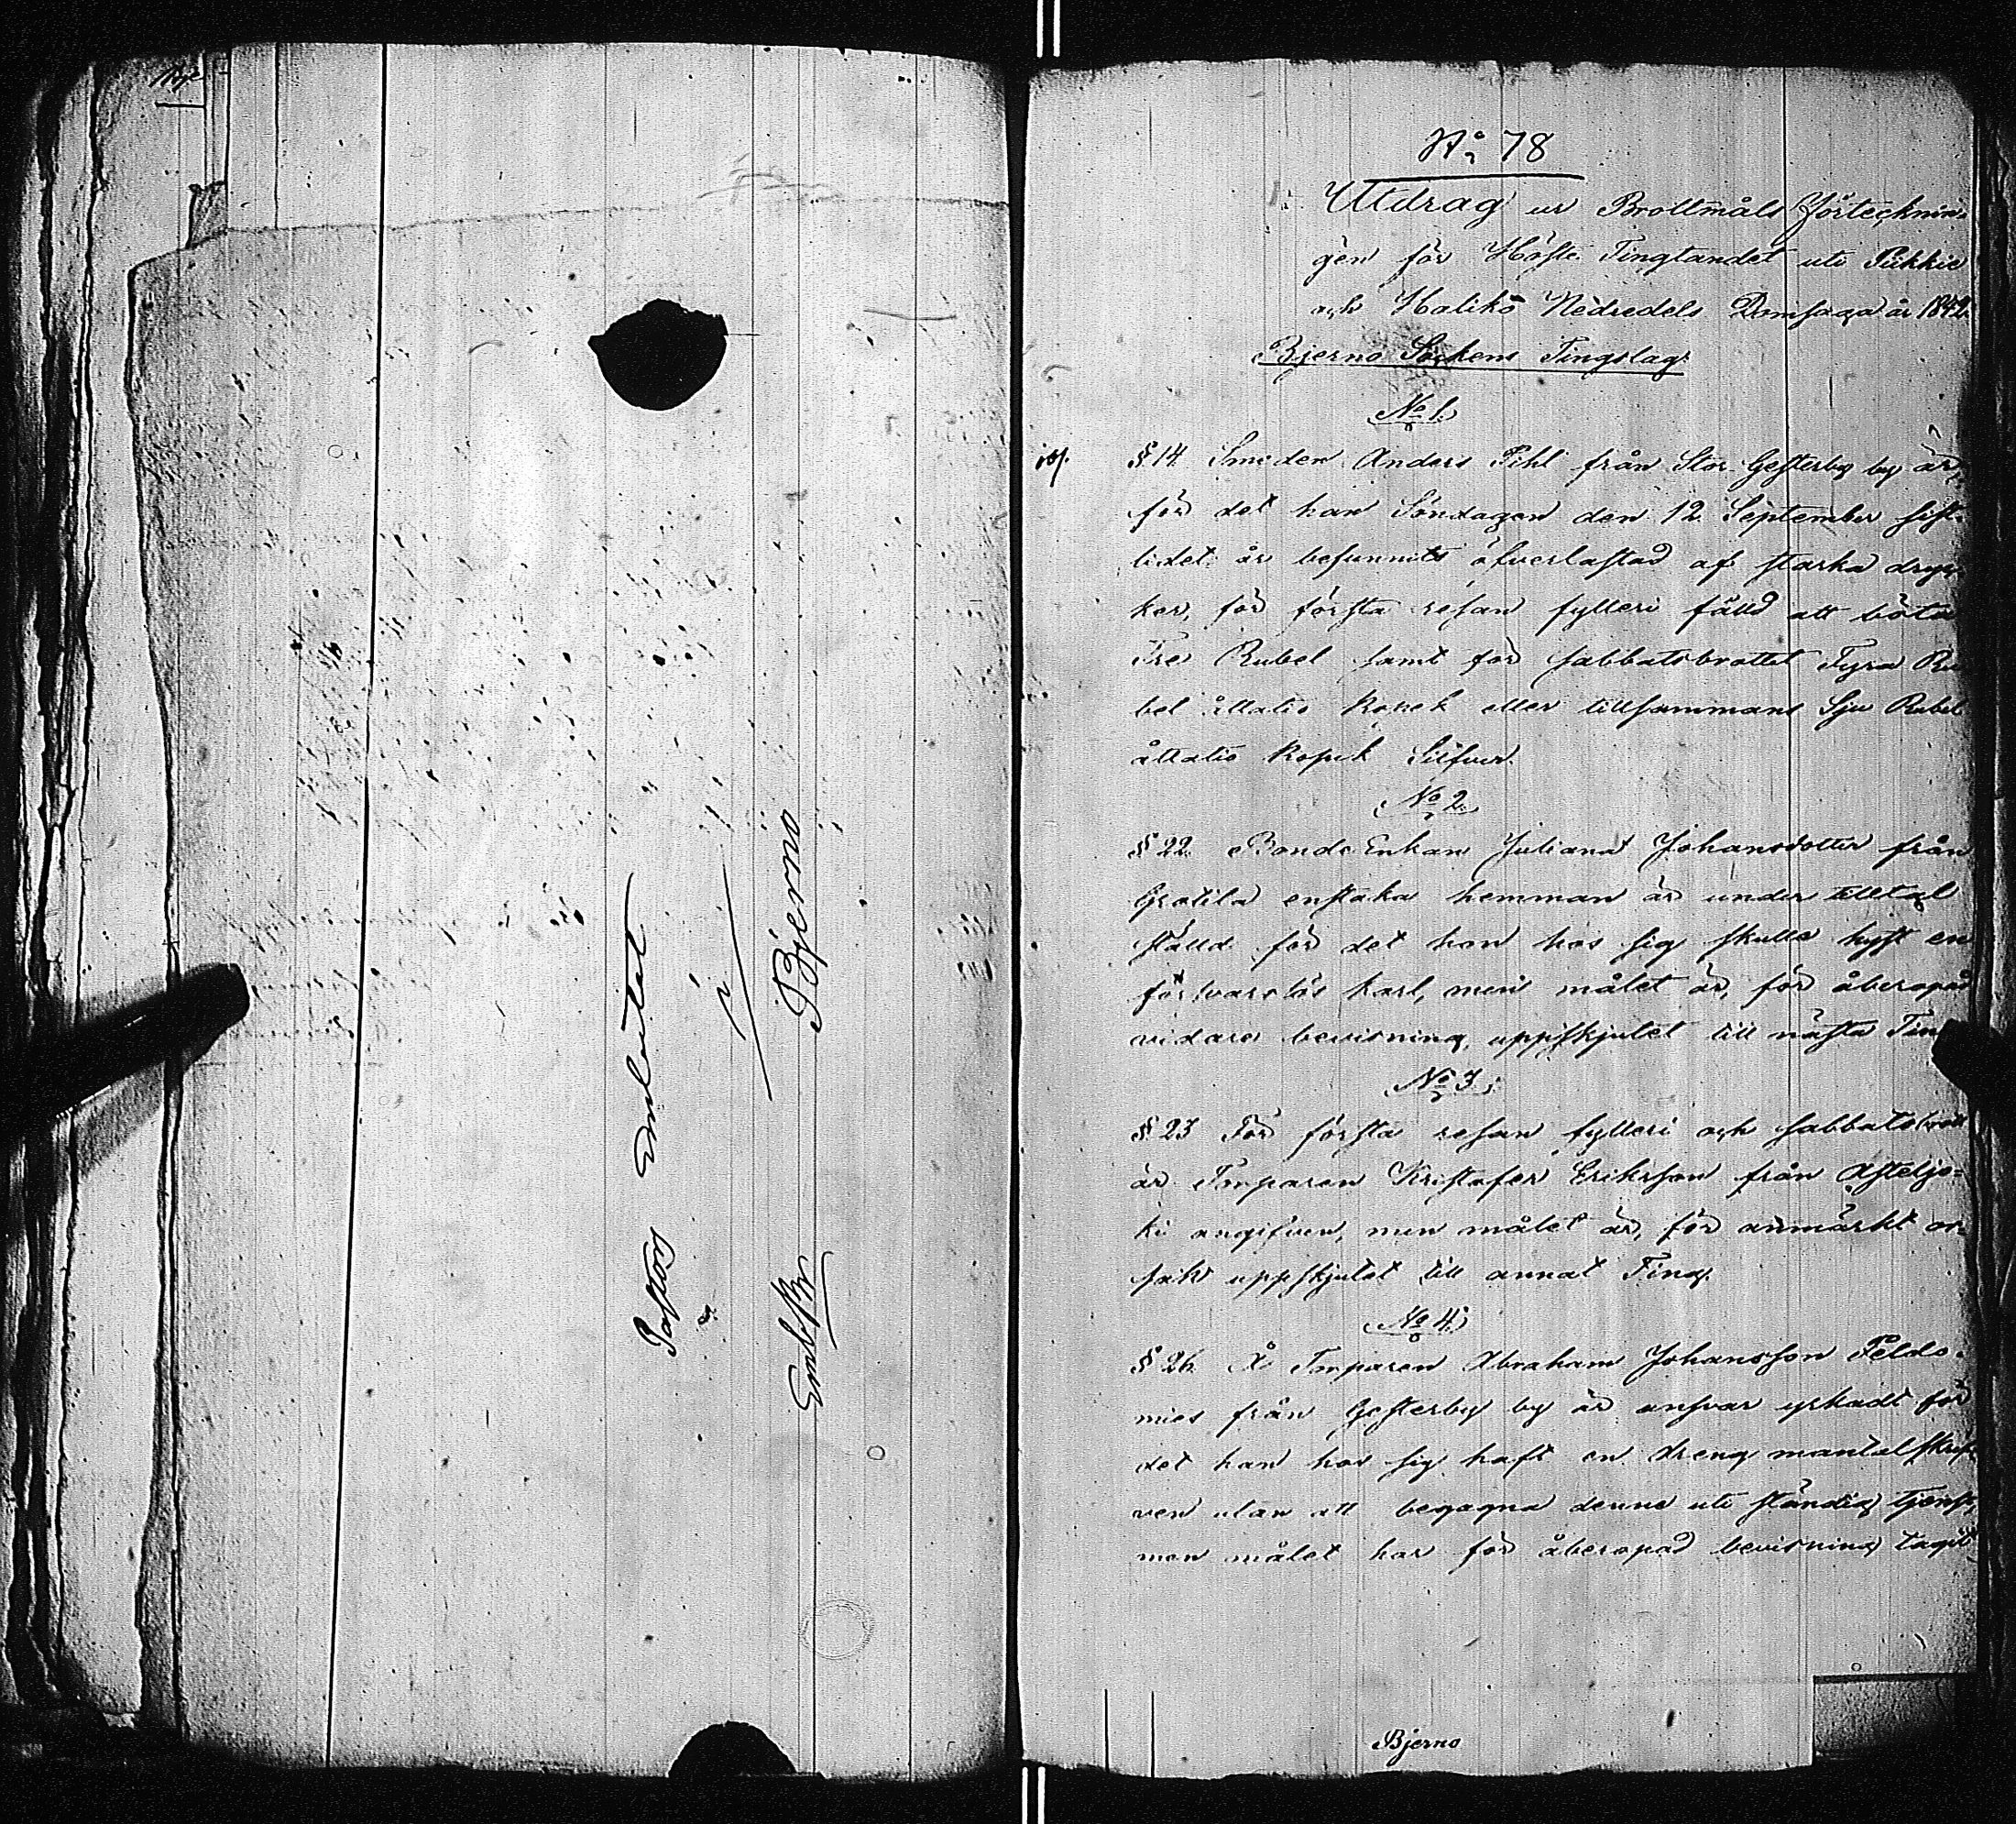 Pastors Embetet
i
Bjerno
Emb. Br.
No 78
Utdrag ur Brottmåls Förtecknin-
gen för Höste Tingtandet uti Pikkie
och Haliko Nedredels Domsaga år 1842.
Bjerno Sockens Tingslag.
No 1.
§ 14. Smeden Anders Pihl från Stor Gesterby by är,
för det han Söndagen den 12 September sist-
lidet år befunnits öfverlastad af starka dryc-
ker, för första resan fylleri fälld att böta
Tre Rubel samt för sabbatsbrottet Fyra Ru
bel åttatio Kopek eller tillsammans Sju Rubel
åttatio Kopek Silfver.
No 2.
§ 22. BondeEnkan Juliana Johansdotter från
Grotila enstaka hemman är under tilltal
ställd för det hon hos sig skulle hyst en
försvarslös karl, men målet är, för åberopad
vidare bevisning, uppskjutet till nästa Ting
No 3.
§ 23 För första resan fylleri och sabbatsbrott
är Torparen Kristofer Eriksson från Asteljo=
ki angifven, men målet är, för anmärkt or-
sak uppskjutet till annat Ting.
No 4.
§ 26. Å Torparen Abraham Johansson Peldo-
mies från Gesterby by är ansvar yrkadt för
det han hos sig haft en dreng mantalskrif-
ven utan att begagna denne uti ständig tjenst,
men målet har för åberopad bevisning tagit
Bjerno